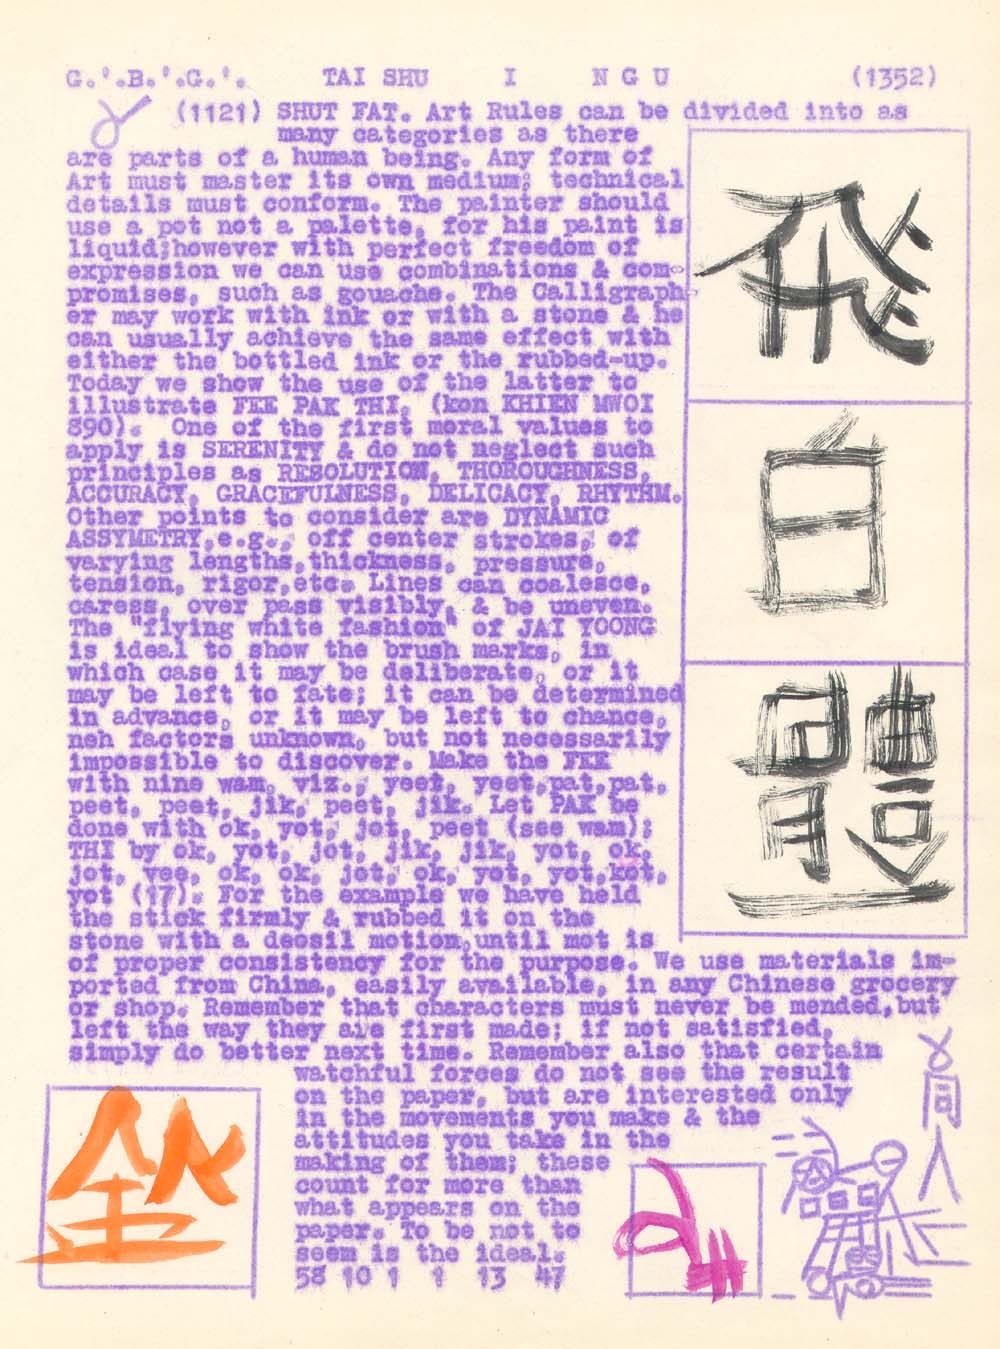 G.'.B.'.G.'. TAI SHU I N G U (1352)
(1121) SHUT FAT. Art Rules can be divided into as
many categories as there
are parts of a human being. Any form of
Art must master its own medium; technical
details must conform. The painter should
use a pot not a palette, for his paint is
liquid;however with perfect freedom of
expression we can use combinations & com-
promises, such as gouache. The Calligraph-
er may work with ink or with a stone & he
can usually achieve the same effect with
either the bottled ink or the rubbed-up.
Today we show the use of the latter to
illustrate FEE PAK THI, (kon KHIEN MWOI
890). One of the first moral values to
apply is SERENITY & do not neglect such
principles as RESOLUTION, THOROUGHNESS,
ACCURACY, GRACEFULNESS, DELICACY, RHYTHM.
Other points to consider are DYNAMIC
ASSYMETRY,e.g., off center strokes, of
varying lengths,thickness, pressure,
tension, rigor,etc. Lines can coalesce,
caress, over pass visibly, & be uneven.
The "flying white fashion" of JAI YOONG
is ideal to show the brush marks, in
which case it may be deliberate, or it
may be left to fate; it can be determined
in advance, or it may be left to chance,
neh factors unknown, but not necessarily
impossible to discover. Make the FEE
with nine wam, viz., yeet, yeet,pat,pat,
peet, peet, jik, peet, jik. Let PAK be
done with ok, yot, jot, peet (see wam);
THI by ok, yot, jot, jik, jik, yot, ok,
jot, yee, ok, ok, jot, ok, yot, yot,kot,
yot (17). For the example we have held
the stick firmly & rubbed it on the
stone with a deosil motion,until mot is
of proper consistency for the purpose. We use materials im-
ported from China, easily available, in any Chinese grocery
or shop. Remember that characters must never be mended,but
left the way they are first made; if not satisfied,
simply do better next time. Remember also that certain
watchful forces do not see the result
on the paper, but are interested only
in the movements you make & the
attitudes you take in the
making of them; these
count for more than
what appears on the
paper. To be not to
seem is the ideal.
58 10 1 1 13 47
飛
白
體